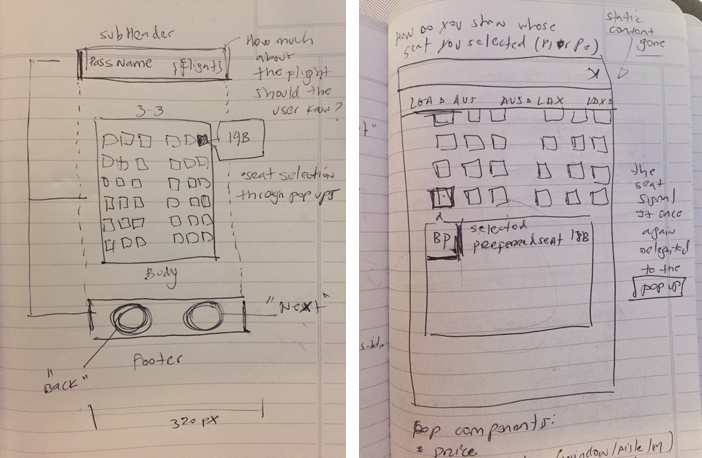 subHeader
PassName {flight}
How much
about
the flight
should the
user know?
3-3
19B
• seat selection
through pop ups
Body
"Next"
"Back"
Footer
320 PX
How Do you show whose
seat you selected
static
content
gone
X
AUS
AUS • LDX
the
seat
signal
once
again
delegated
to the
pop up
BP
selected
preferred seat 18B
components:
(window/aisle/m)